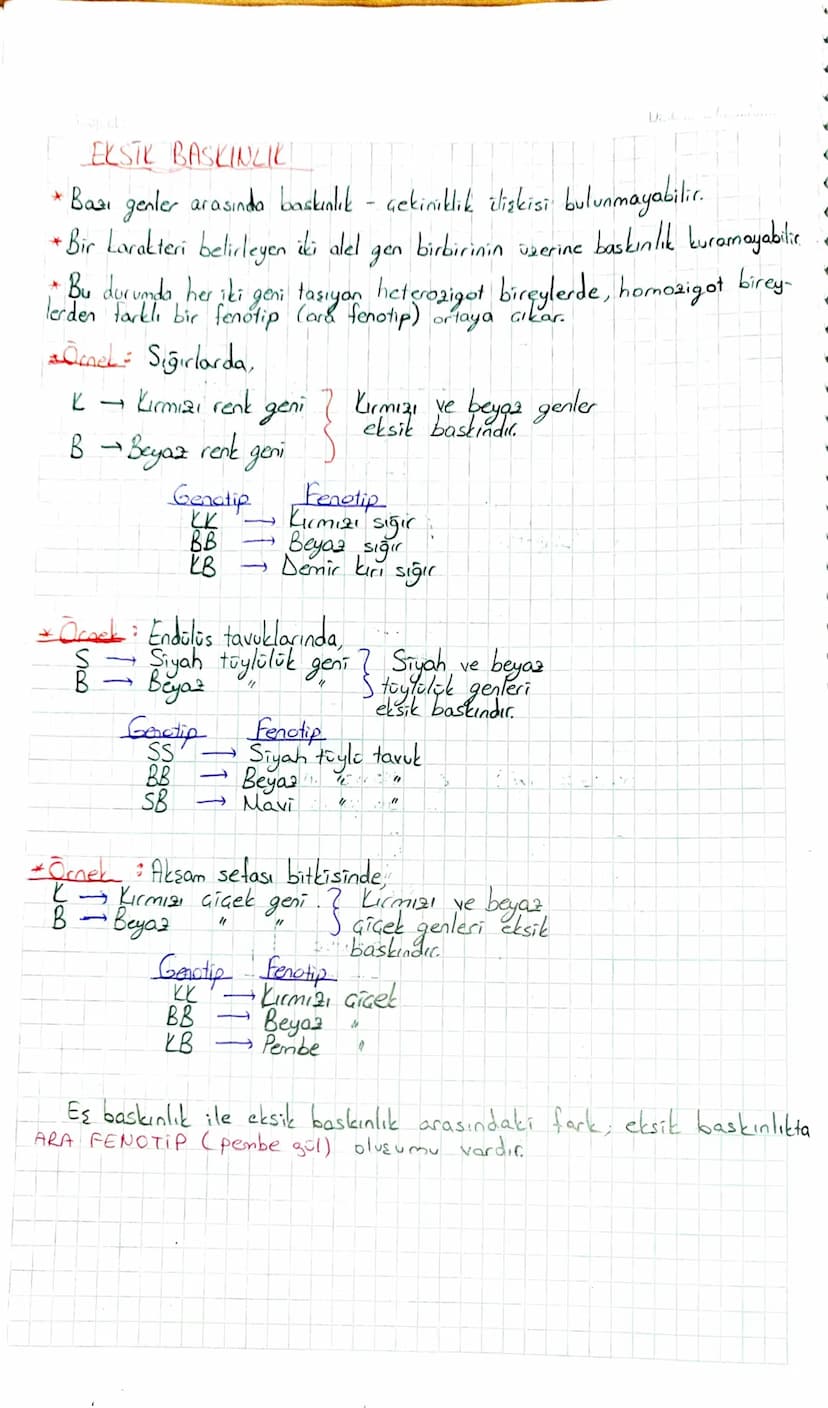 EKSİK BASKINLIK
* Bazı genler arasında baskınlık - çekiniklik ilişkisi bulunmayabilir.
* Bir karakteri belirleyen iki alel gen birbirinin üzerine baskınlık kuramayabilir
* Bu durumda her iki geni taşıyan heterozigot bireylerde, homozigot birey-
lerden farklı bir fenotip (ara fenotip) ortaya çıkar.
* Örnek: Sığırlarda,
K → Kırmızı renk geni } Kırmızı ve beyaz genler
eksik baskındır.
B → Beyaz renk geni
Genotip Fenotip
KK → Kırmızı sığır
BB → Beyaz sığır
KB → Demir kırı sığır
* Örnek: Endülüs tavuklarında,
S → Siyah tüylülük geni } Siyah ve beyaz
B → Beyaz " " tüylülük genleri
eksik baskındır.
Genotip Fenotip
SS → Siyah tüylü tavuk
BB → Beyaz " "
SB → Mavi " "
* Örnek : Akşam sefası bitkisinde,
K → Kırmızı çiçek geni } Kırmızı ve beyaz
B → Beyaz " " çiçek genleri eksik
baskındır.
Genotip Fenotip
KK → Kırmızı çiçek
BB → Beyaz "
KB → Pembe "
Eş baskınlık ile eksik baskınlık arasındaki fark; eksik baskınlıkta
ARA FENOTİP (pembe gül) oluşumu vardır.